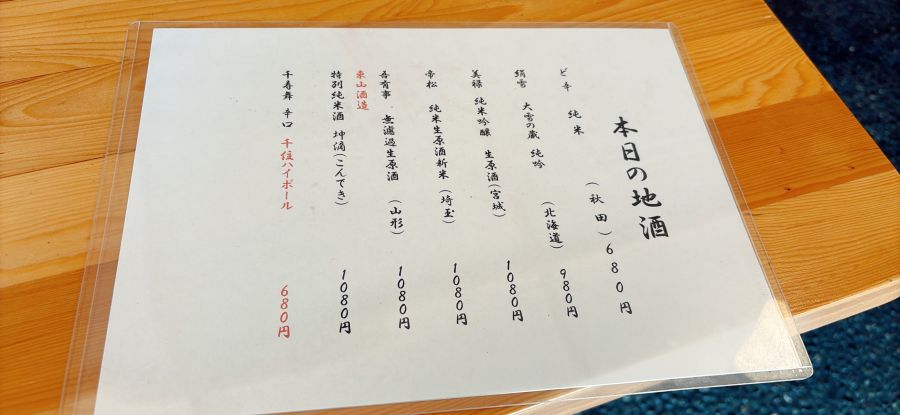 本日の地酒
ど辛 純米 (秋田) 680円
絹雪 大雪の蔵 純吟 (北海道) 980円
美禄 純米吟醸 生原酒(宮城) 1080円
帝松 純米生原酒新米 (埼玉) 1080円
吾有事 無濾過生原酒 (山形) 1080円
東山酒造
特別純米酒 坤滴(こんてき) 1080円
千寿舞 辛口 千住ハイボール 680円